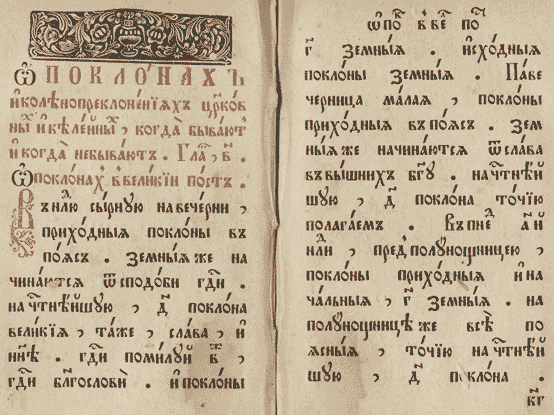 Ѡ ПОКЛО́НАХЪ
и҆ колѣнопреклоне́нїѧхъ цр҃ко́в
ны́ и҆ кѣле́йны̾ , когда̀ быва́ют
и҆ когда̀ небыва́ютъ . Гла̾ , в҃ .
Ѡ҆ поклона́х в̾ вели́кїи по́стъ .
Въ нлю сы́рную на вече́рни ,
прихо́дныѧ покло́ны въ
по́ѧсъ . Земны́ѧже на
чина́ютсѧ ѿ сподо́би гд҇и .
на чт҇нѣ́йшую , д҃ покло́на
вели́кїѧ , та́же , сла́ва , и҆
нн҃ѣ . гд҇и поми́луй в҃ ,
гд҇и бл҃гослови̾ . и҆ покло́ны
ѡ҆ по̾ в̾ ве̾ по̾
г҃ земны́ѧ . и҆схо́дныѧ
покло́ны земны́ѧ . Па́ве
черница ма́лаѧ , покло́ны
прихо́дныѧ въ по́ѧсъ . Зем
ны́ѧже начина́ютсѧ ѿ сла́ва
въ вы́шнихъ бг҃у . на чт҇нѣ́й
шую , д҃ покло́на то́чїю
полага́емъ . Въ пне̾ а҆й
нли , пред̾ полу́нощницею ,
покло́ны прихо́дныѧ и҆ на
ча́льныѧ , г҃ земны́ѧ . на
полу́нощницѣ же всѣ̀ по
ѧсны́ѧ , то́чїю на чт҇нѣ́й
шую , д҃ покло́на .
к҃г